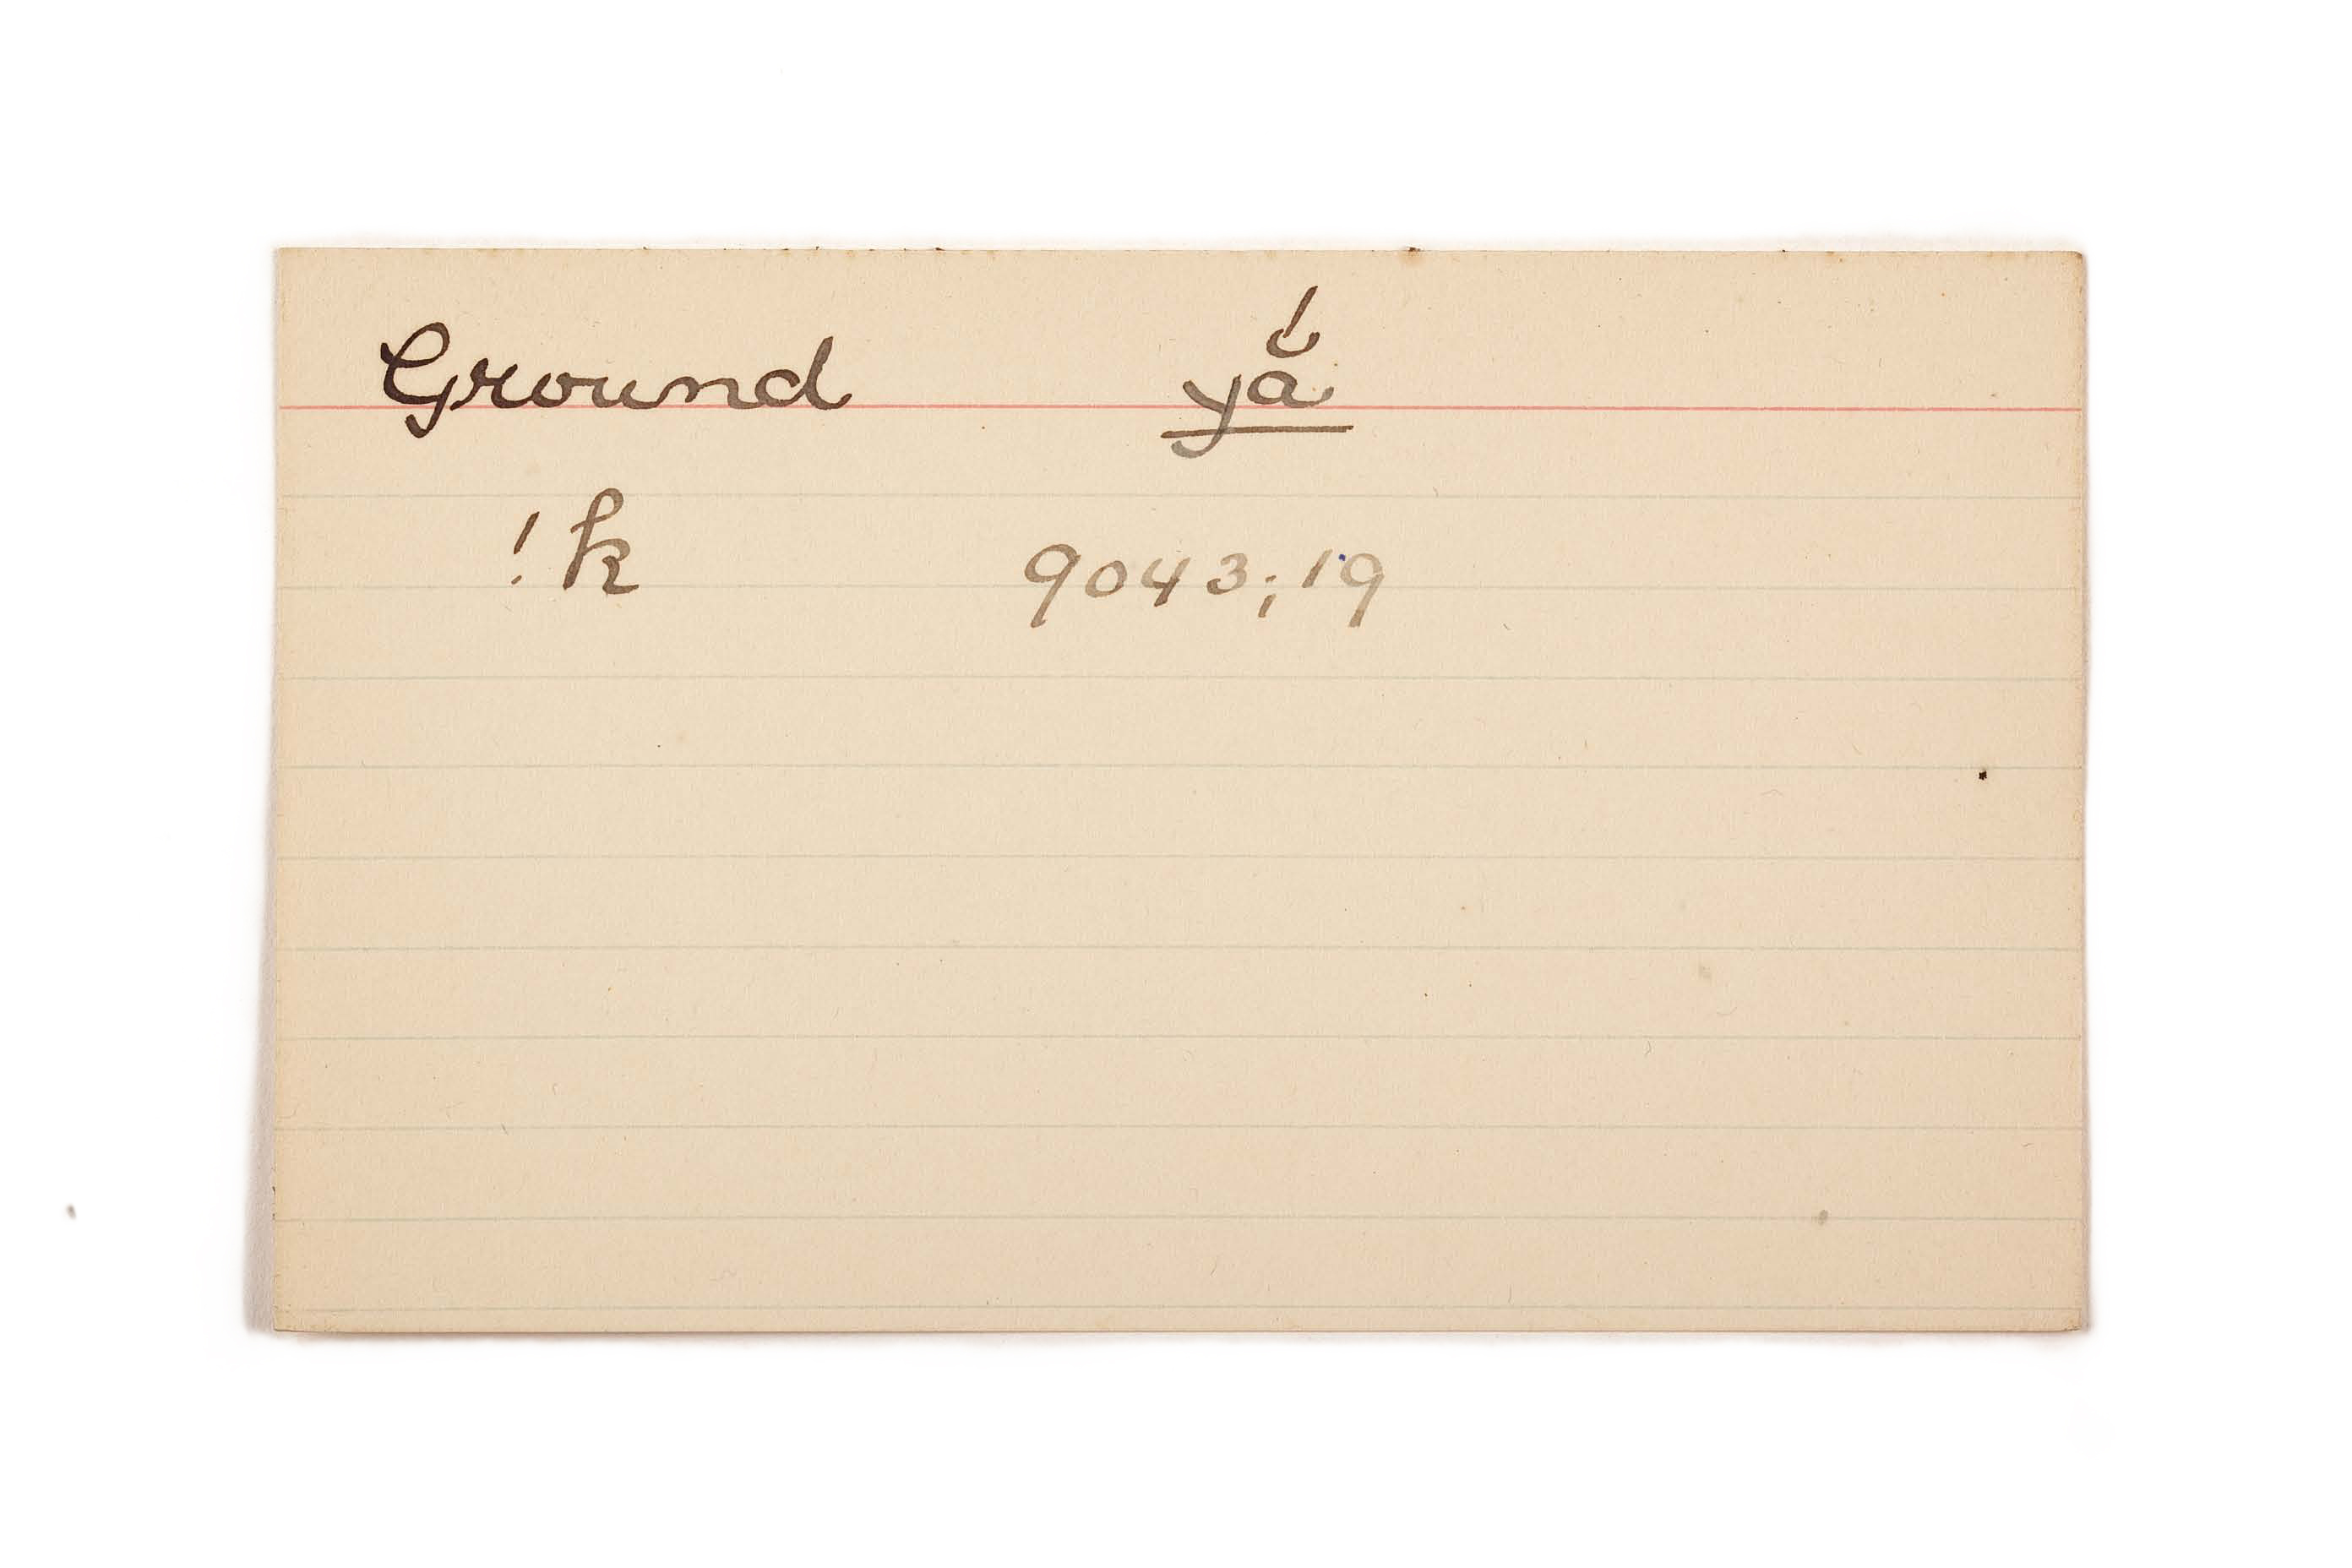 Ground yắ
!k 9043;19